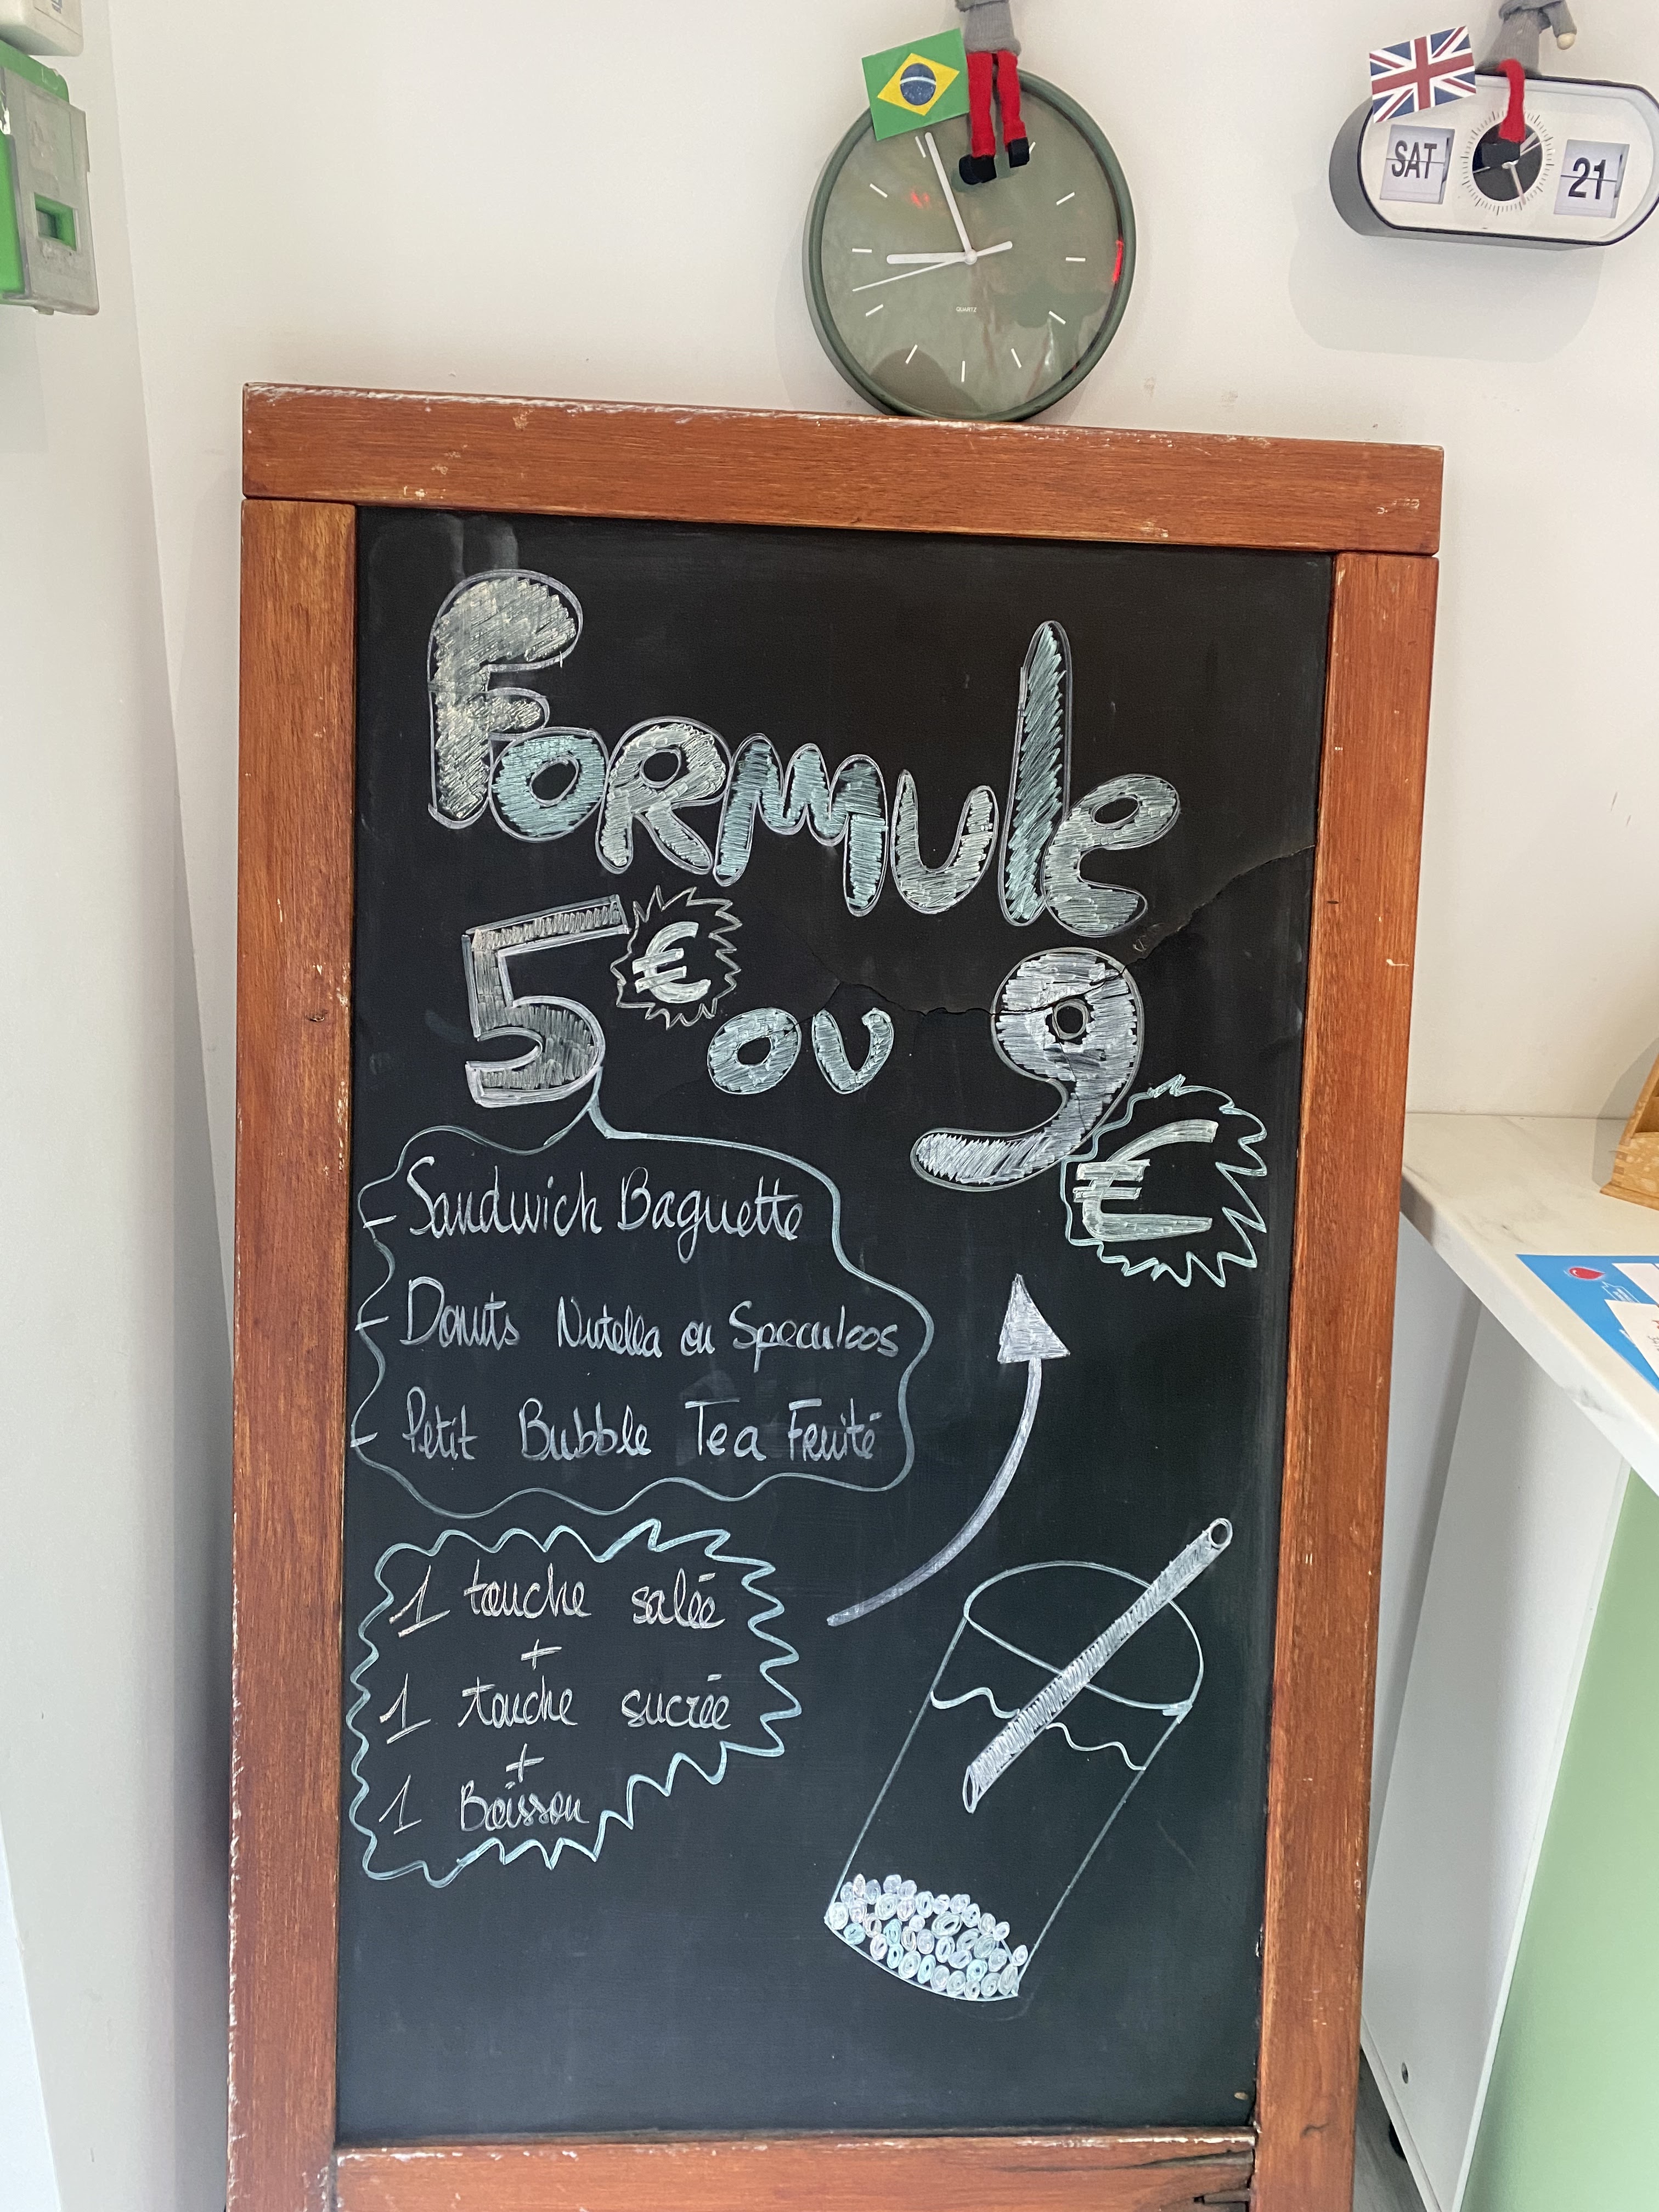 SAT 21
QUARTZ
FORMule
5€ ou 9€
- Sandwich Baguette
- Donuts Nutella ou Speculoos
- Petit Bubble Tea Fruité
1 touche salée
+
1 touche sucrée
+
1 Boisson